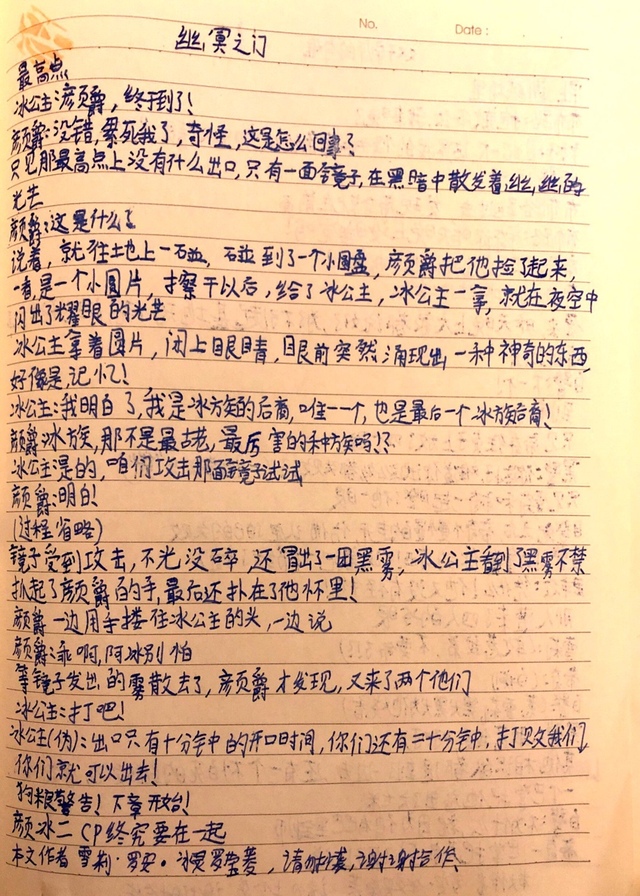 No.
Date:
幽冥之门
最高点
冰公主:颜爵,终于到了!
颜爵:没错,累死我了,奇怪,这是怎么回事?
只见那最高点上没有什么出口,只有一面镜子,在黑暗中散发着丝丝的
光芒
颜爵:这是什么
说着,就往地上一碰,碰到了一个小圆盘,颜爵把他捡了起来,
一看,是一个小圆片,擦干以后,给了冰公主,冰公主一拿,就在夜空中
闪出了耀眼的光芒
冰公主拿着圆片,闭上眼睛,眼前突然涌现出一种神奇的东西,
好像是,记忆!
冰公主:我明白了,我是冰族的后裔,唯一一个,也是最后一个冰族后裔!
颜爵:冰族,那不是最古老,最厉害的种族吗!?
冰公主:是的,咱们攻击那面镜子试试
颜爵:明白!
(过程省略)
镜子受到攻击,不光没碎,还冒出了一团黑雾,冰公主看到了黑雾不禁
抓起了颜爵的手,最后还扑在了他怀里!
颜爵一边用手搂住冰公主的头,一边说
颜爵:乖啊,阿冰别怕
等镜子发出的雾散去了,颜爵才发现,又来了两个他们
冰公主:打吧!
冰公主(伪):出口只有十分钟中的开口时间,你们还有二十分钟中,打败我们,
你们就可以出去!
狗粮警告!下章开始!
颜冰二CP终究要在一起
本文作者 雪莉·罗安·冰灵罗莹菱,请勿抄袭,谢谢合作、